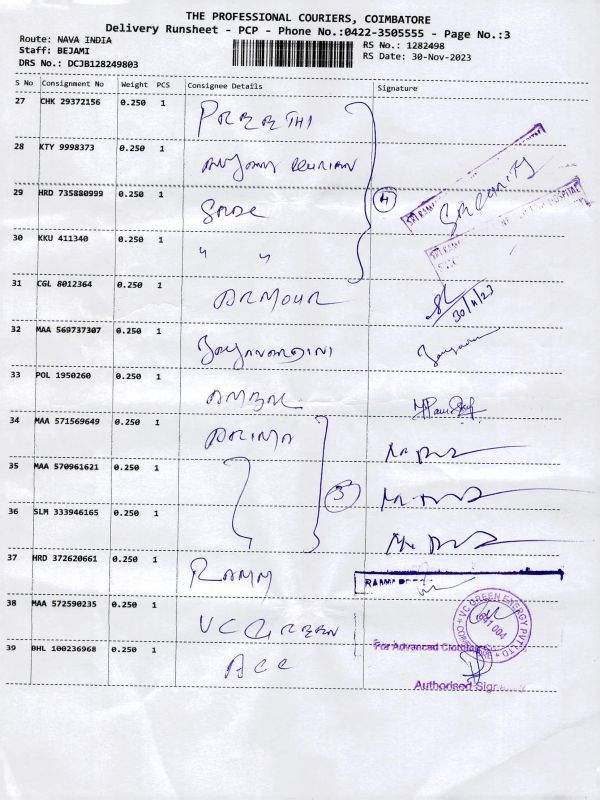 THE PROFESSIONAL COURIERS, COIMBATORE
Delivery Runsheet - PCP - Phone No.:0422-3505555 - Page No.:3
Route: NAVA INDIA
Staff: BEJAMI
DRS No.: DCJB128249803
RS No.: 1282498
RS Date: 30-Nov-2023
S No Consignment No Weight PCS Consignee Details Signature
27 CHK 29372156 0.250 1 PREETHI
28 KTY 9998373 0.250 1
29 HRD 735880999 0.250 1 4 Security
30 KKU 411340 0.250 1 " "
31 CGL 8012364 0.250 1 ARMOUR 30/11/23
32 MAA 569737307 0.250 1
33 POL 1950260 0.250 1 AMBAL
34 MAA 571569649 0.250 1
35 MAA 570961621 0.250 1
36 SLM 333946165 0.250 1 3
37 HRD 372620661 0.250 1 RAMM
38 MAA 572590235 0.250 1 VC GREEN
VC GREEN ENERGY PVT LTD
For Advanced
39 BHL 100236968 0.250 1 ACC
Authorised